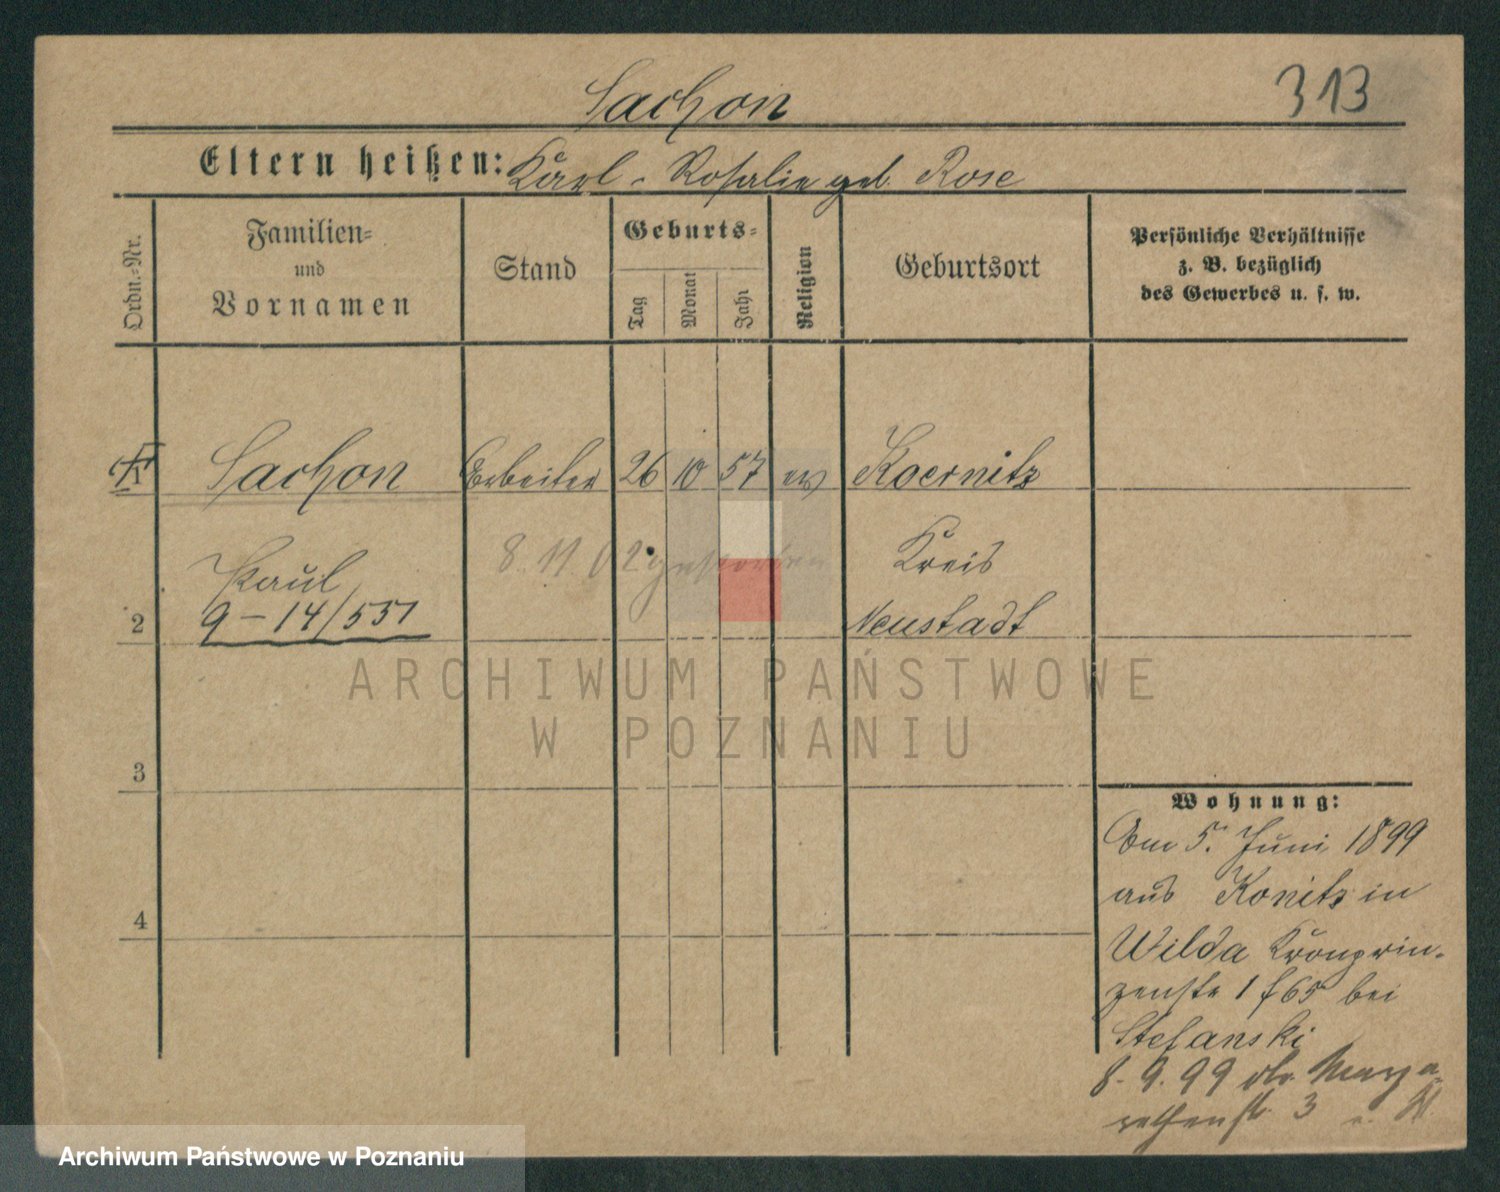 Sachon
313
Eltern heißen: Karl - Rosalie geb. Rose
Ordn.=Nr.
Familien=
und
Vornamen
Stand
Geburts=
Tag
Monat
Jahr
Religion
Geburtsort
Persönliche Verhältnisse
z. B. bezüglich
des Gewerbes u. s. w.
1
Sachon
Arbeiter
26
10
57
ev
Koernitz
Paul
8. 11. 02 gestorben
Kreis
2
9 - 14/551
Neustadt
ARCHIWUM PAŃSTWOWE
W POZNANIU
3
4
Wohnung:
Am 5. Juni 1899
aus Konitz in
Wilda Kronprin-
zenstr 1 f 65 bei
Stefanski
8. 9. 99 Marga-
rethenstr. 3
Archiwum Państwowe w Poznaniu